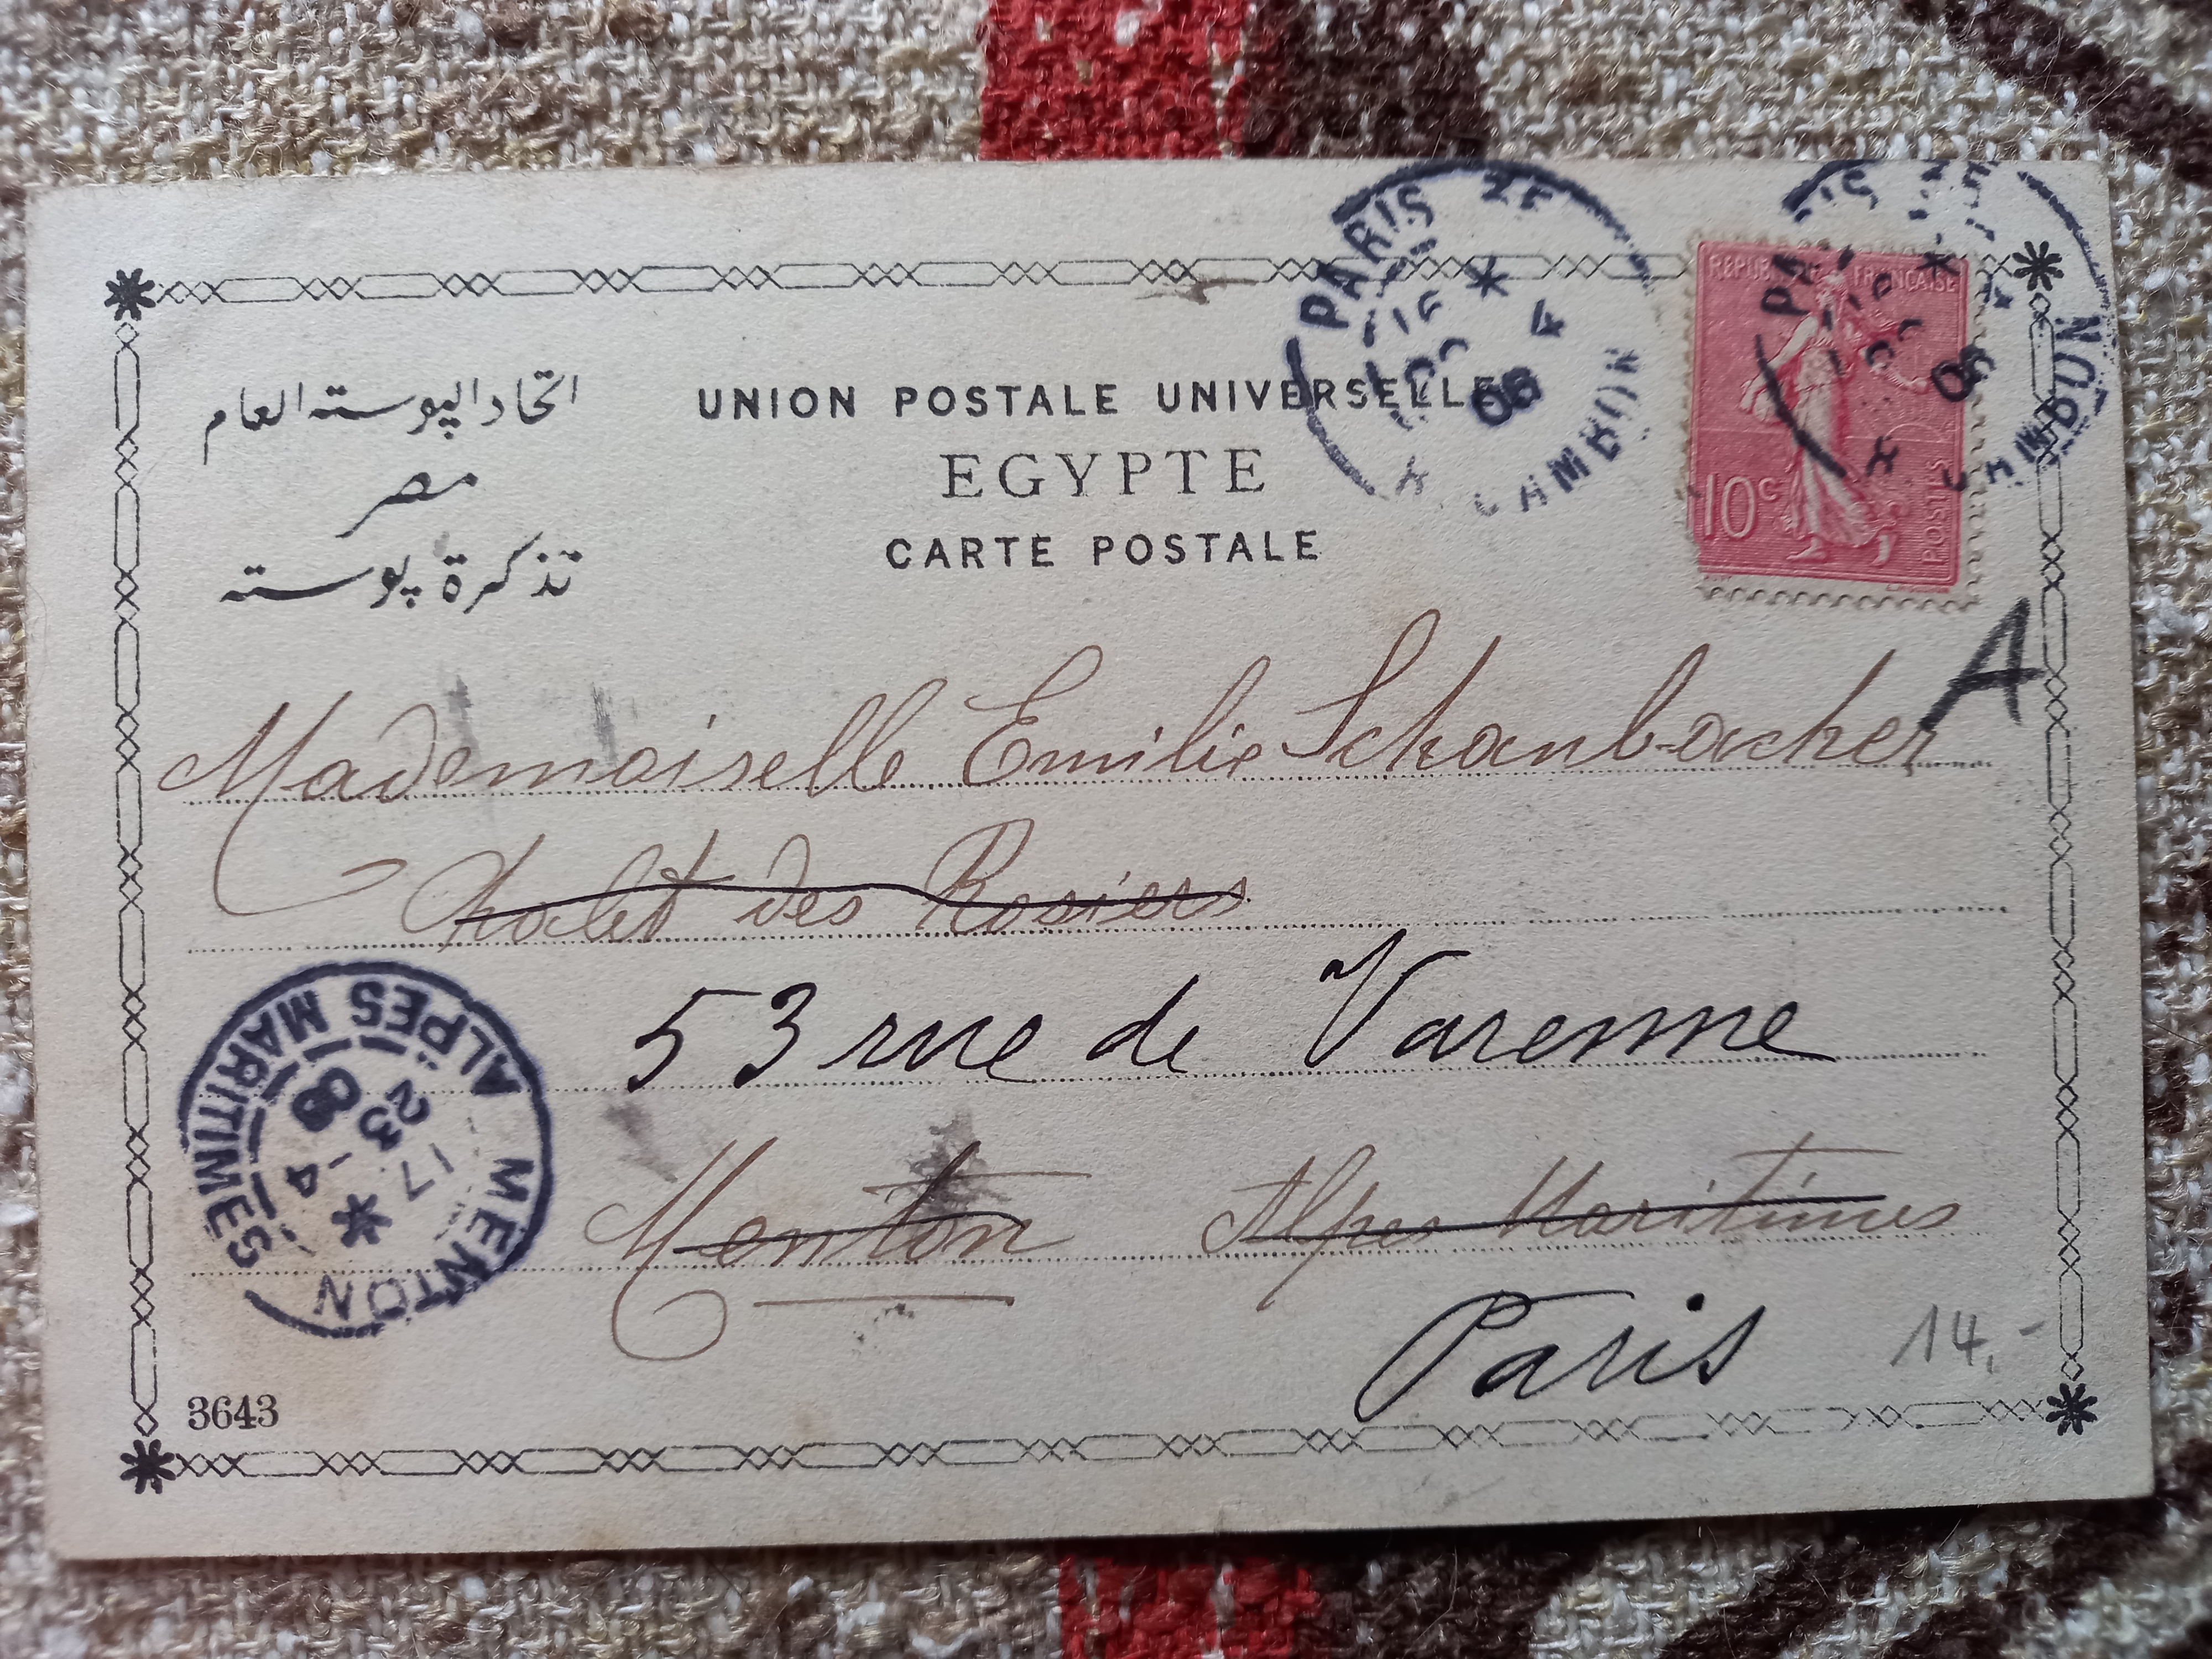 اتحاد البوسته العام
مصر
تذكرة پوسته
UNION POSTALE UNIVERSELLE
EGYPTE
CARTE POSTALE
PARIS
4
08
CAMBON
REPUBLIQUE FRANÇAISE
10c
POSTES
08
CAMBON
A
Mademoiselle Emilie Schanbacher
Chalet des Rosiers
53 rue de Varenne
Menton Alpes Maritimes
Paris
14.-
MENTON
17
23 - 4
08
ALPES MARITIMES
3643